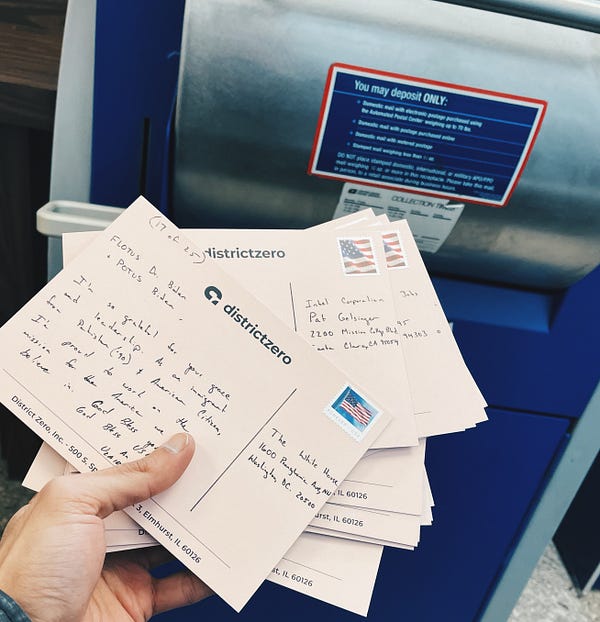 You may deposit ONLY:
Domestic mail with electronic postage purchased using
the Automated Postal Center weighing up to 70 lbs.
Domestic mail with postage purchased online
Domestic mail with metered postage
Stamped mail weighing less than oz.
DO NOT place stamped domestic, international, or military APO/FPO
mail weighing oz. or more in this receptacle. Please take this mail,
in person, to a retail associate during business hours.
COLLECTION TIMES
districtzero
Intel Corporation
Pat Gelsinger
2200 Mission College Blvd.
Santa Clara, CA 95054
Jobs
95
94303
(17 of 25)
FLOTUS Dr. Biden
+ POTUS Biden,
I'm so grateful for your grace
and leadership. As an immigrant
from Pakistan ('90) & American Citizen,
I'm proud to work on the
mission for the America we
believe in. God Bless
God Bless
districtzero
The White House
1600 Pennsylvania Ave, NW
Washington, DC. 20500
District Zero, Inc. - 500 S.
3, Elmhurst, IL 60126
IL 60126
IL 60126
st, IL 60126
st, IL 60126